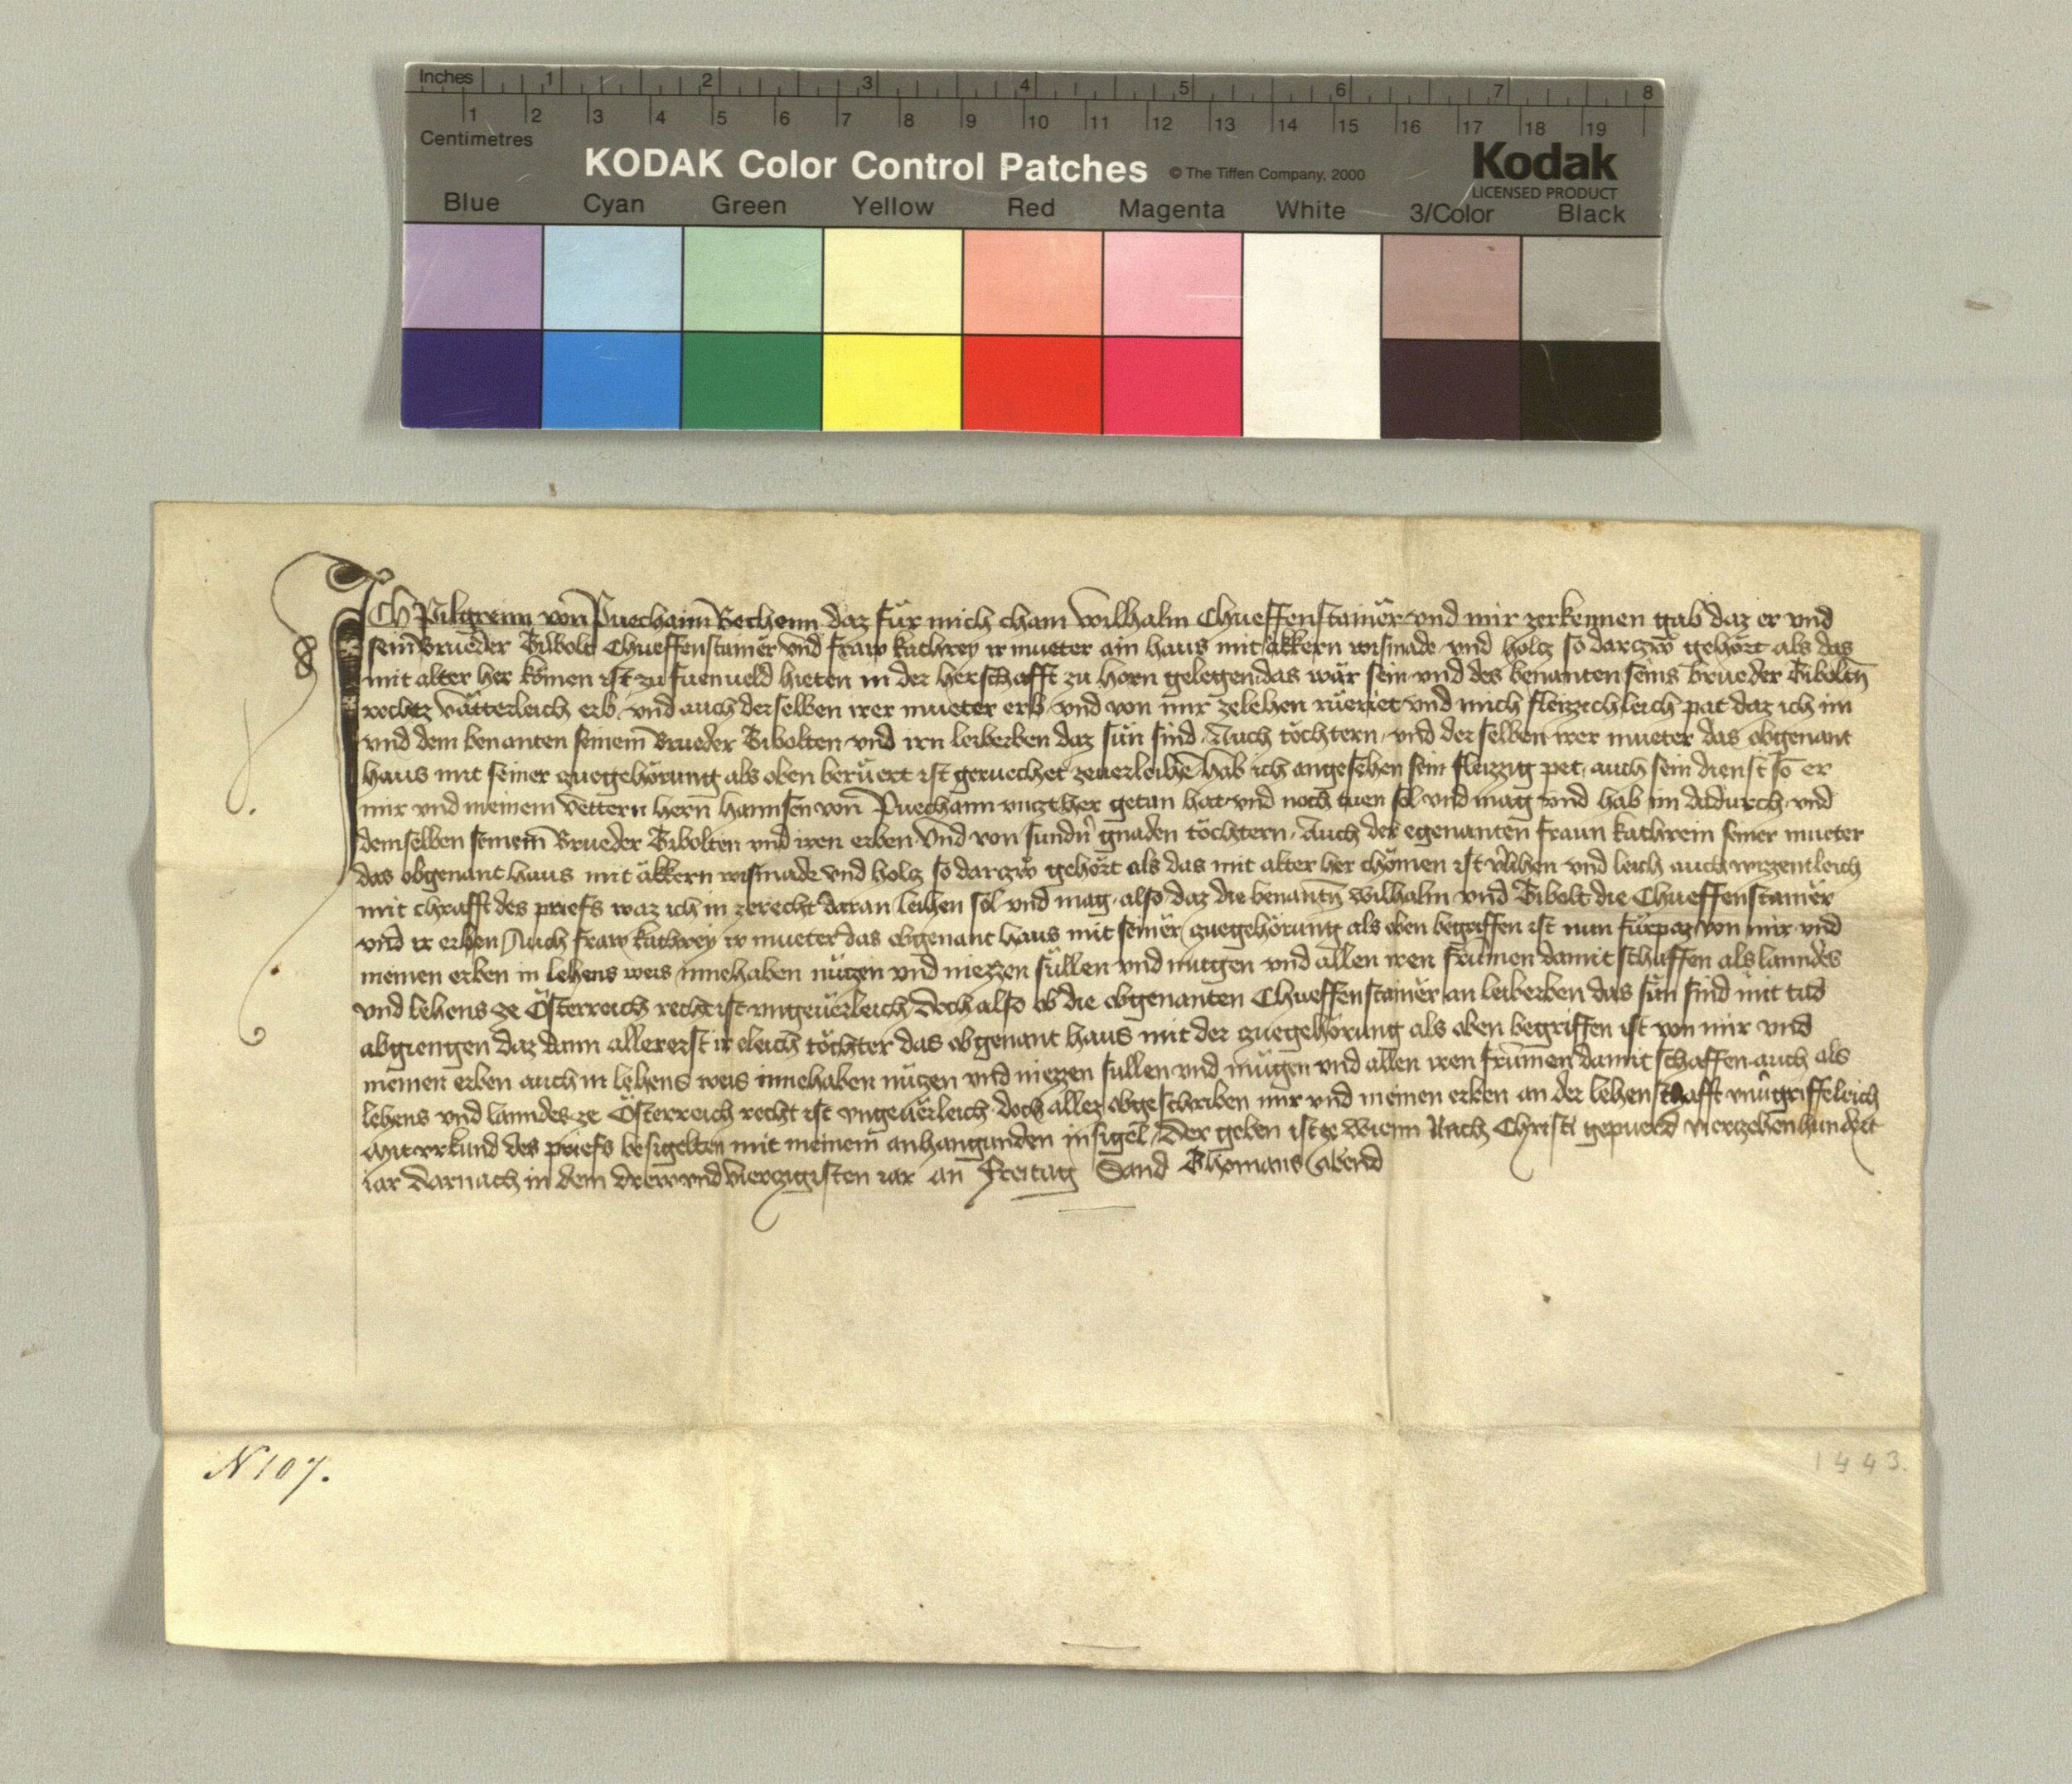 Inches 1 2 3 4 5 6 7 8
1 2 3 4 5 6 7 8 9 10 11 12 13 14 15 16 17 18 19
Centimetres
KODAK Color Control Patches © The Tiffen Company, 2000 Kodak
LICENSED PRODUCT
Blue Cyan Green Yellow Red Magenta White 3/Color Black
Ich Pilgreim von Puechaim Bechenn daz für mich cham Wilhalm Chueffenstainer und mir zerkennen gab daz er und
sein Brueder Bibolt Chueffenstainer und fraw kathrey ir mueter ain haus mit äkkern wismade und holtz so darczw gehört als das
mit alter her kömen ist zu fuenueld hieten in der herschafft zu horn gelegen das wär sein und des benanten seins brueder Bibolten
rechtz vätterleich erb und auch derselben irer mueter erb und von mir zelehen rüeret und mich fleizichleich pat daz ich im
und dem benanten seinem Brueder Bibolten und irn leiberben daz sün sind Auch töchtern und derselben irer mueter das obgenant
haus mit seiner zuegehörung als oben berüert ist geruechet zeuerleihen hab ich angesehen sein fleizzig pet auch sein dienst so er
mir und meinem vettern hern hannsen von Puechaim unczther getan hat und noch tuen sol und mag und hab im dadurch und
demselben seinem Brueder Bibolten und iren erben und von sundern gnaden töchtern Auch der egenanten fraun kathrein seiner mueter
das obgenant haus mit äkkern wismade und holcz so darczw gehört als das mit alter her chömen ist verlihen und leich auch wizzentleich
mit chrafft des priefs waz ich in zerecht daran leihen sol und mag also daz die benanten Wilhalm und Bibolt die Chueffenstainer
und ir erben Auch fraw kathrey ir mueter das obgenant haus mit seiner zuegehörung als oben begriffen ist nun fürpaz von mir und
meinen erben in lehens weis innehaben nüczen und niezzen süllen und mugen und allen iren frumen damit schaffen als lanndes
und lehens ze Österreich recht ist ungeuerleich doch also ob die obgenanten Chueffenstainer an leiberben das sün sind mit tod
abgiengen daz dann allererst ir eleich töchter das obgenant haus mit der zuegehörung als oben begriffen ist von mir und
meinen erben auch in lehens weis innehaben nüczen und niezzen sullen und mügen und allen iren frumen damit schaffen auch als
lehens und lanndes ze Österreich recht ist ungeuerleich doch aller obgeschriben mir und meinen erben an der lehenschafft unuergriffeleich
Mit urkund des priefs besigelten mit meinem anhangunden insigel Der geben ist ze Wienn Nach Christi gepuerd vierzehenhundert
iar darnach in dem drewundvierczigisten iar an Freitag Sand Thomans abend
N 107.
1443.